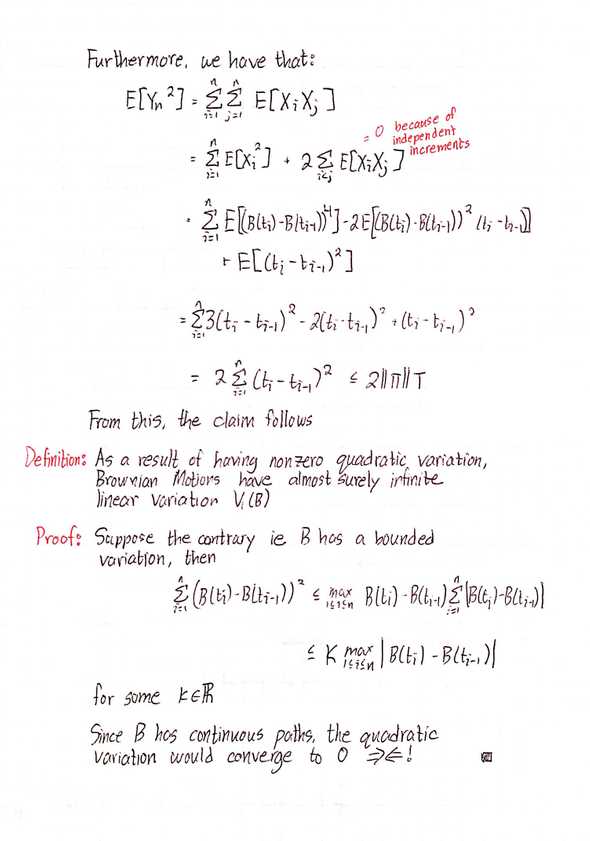 Furthermore, we have that:
E[Yn²] = n∑i=1 n∑j=1 E[XiXj]
= 0 because of
independent
increments
= n∑i=1 E[Xi²] + 2∑i<j E[XiXj]
= n∑i=1 E[(B(ti)-B(ti-1))⁴] - 2E[(B(ti)-B(ti-1))² (ti - ti-1)]
+ E[(ti - ti-1)²]
= n∑i=1 3(ti - ti-1)² - 2(ti - ti-1)² + (ti - ti-1)²
= 2 n∑i=1 (ti - ti-1)² ≤ 2||Π||T
From this, the claim follows
Definition: As a result of having nonzero quadratic variation,
Brownian Motions have almost surely infinite
linear variation V₁(B)
Proof: Suppose the contrary ie B has a bounded
variation, then
n∑i=1 (B(ti)-B(ti-1))² ≤ max 1≤i≤n B(ti)-B(ti-1) n∑i=1 |B(ti)-B(ti-1)|
≤ K max 1≤i≤n |B(ti) - B(ti-1)|
for some K∈ℝ
Since B has continuous paths, the quadratic
variation would converge to 0 ⇒⇐!